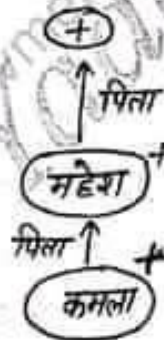 +
पिता
महेश +
पिता
+
कमला